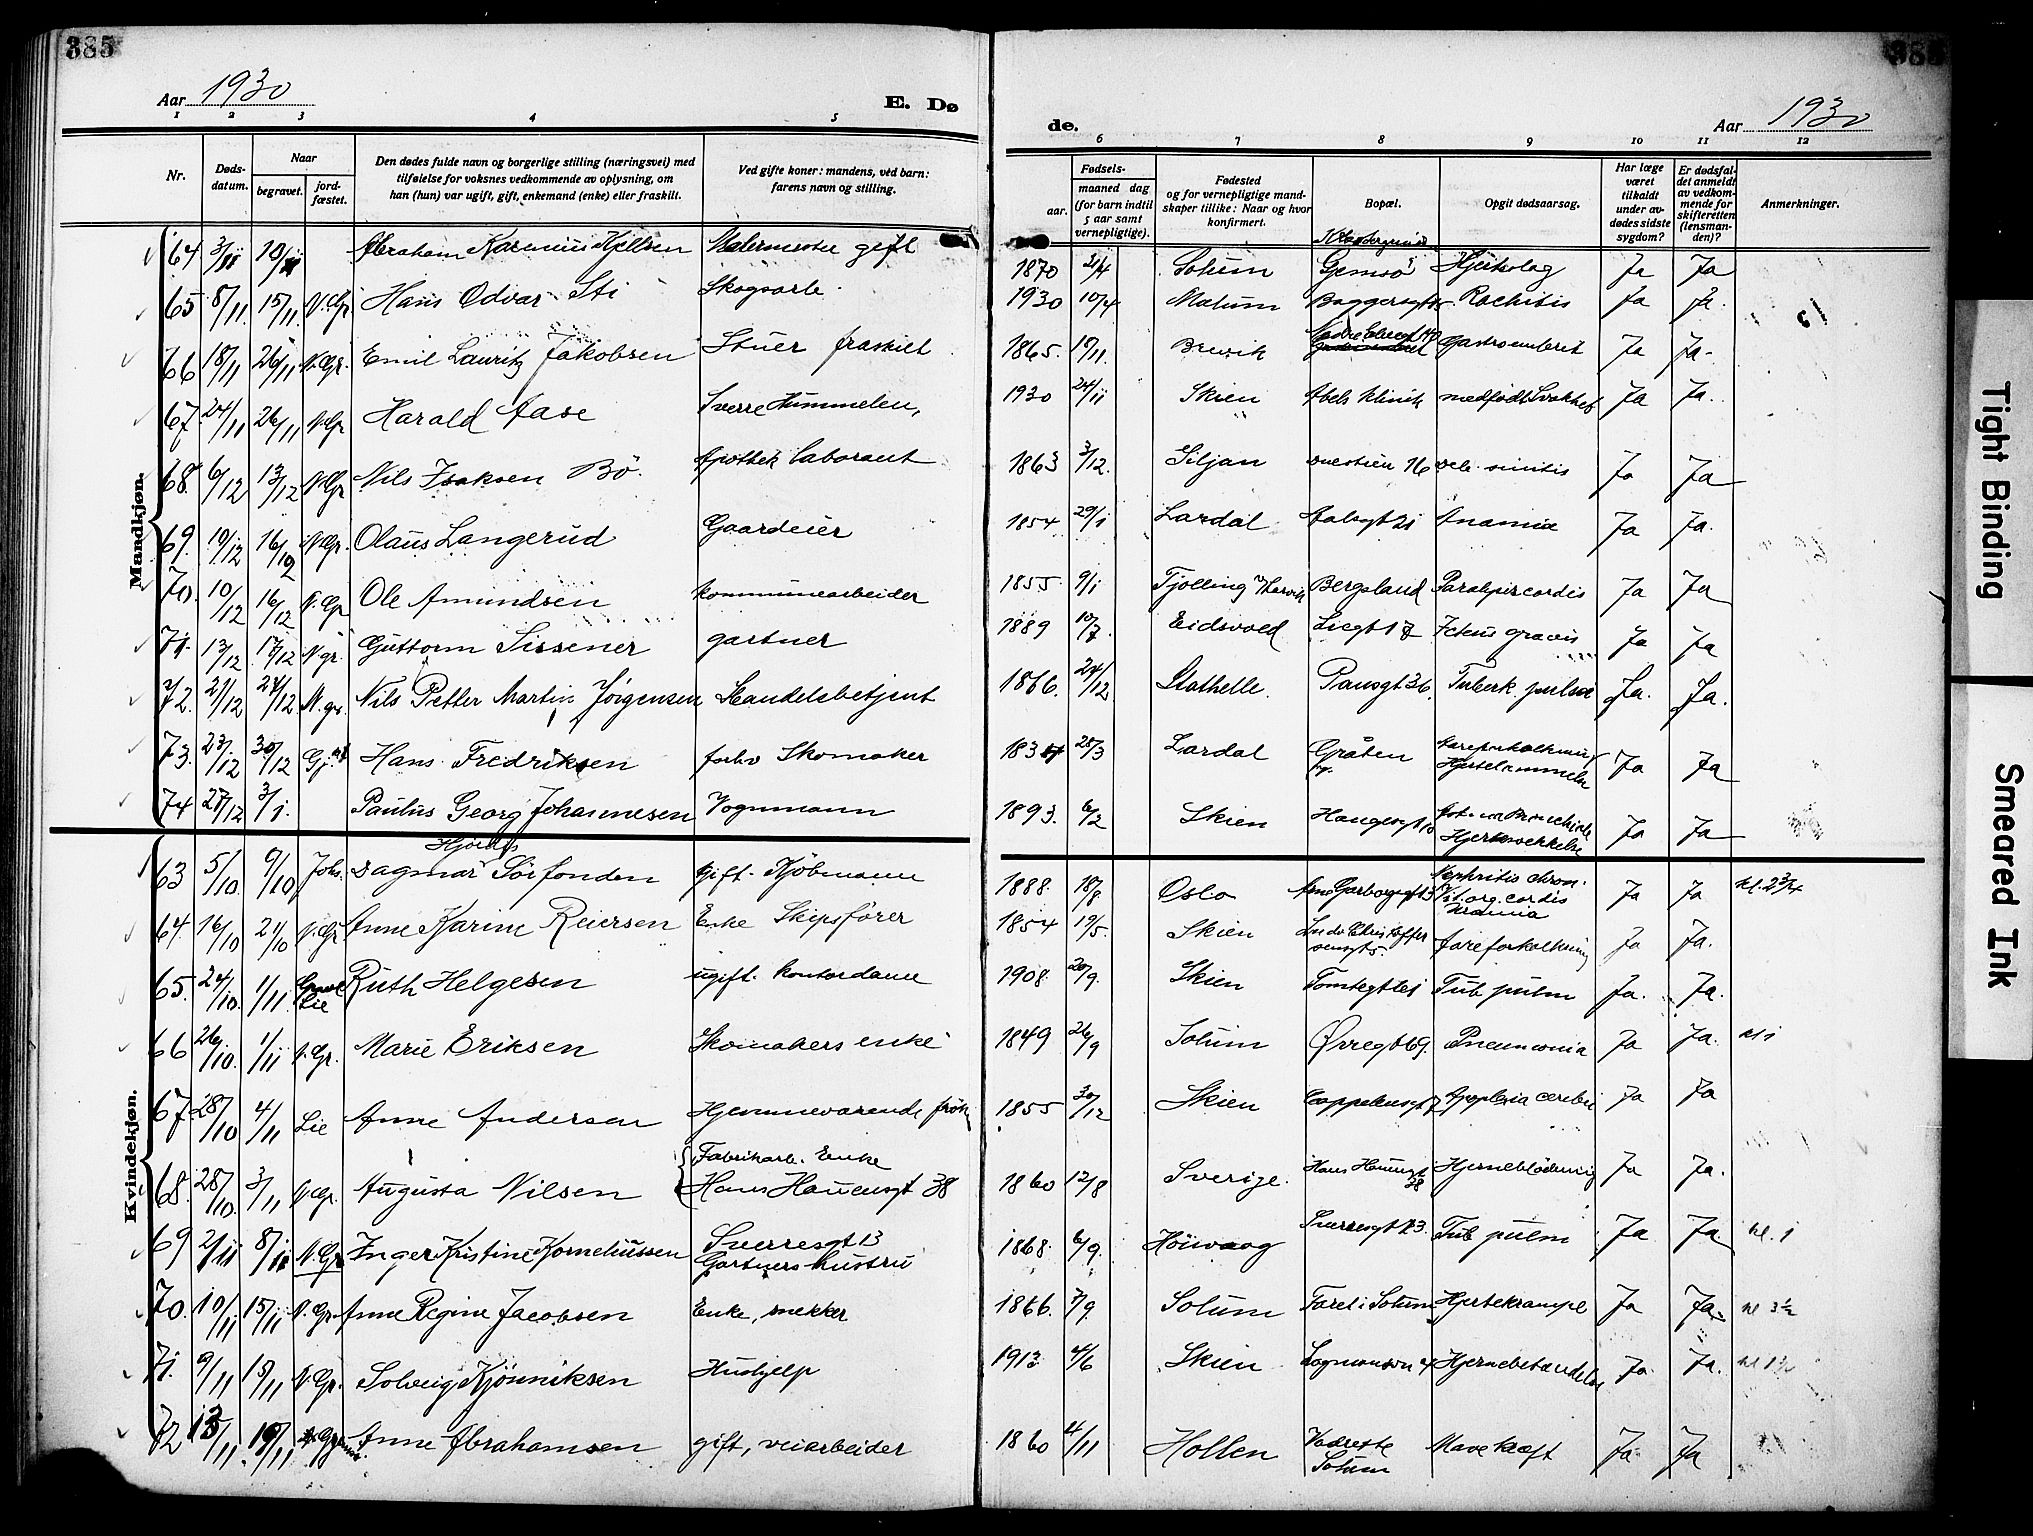 385
385
Aar 1930
E. Dø
de.
Aar 1930
1 2 3 4 5
6 7 8 9 10 11 12
Nr.
Døds-
datum.
Naar
begravet.
jord-
fæstet.
Den dødes fulde navn og borgerlige stilling (næringsvei) med
tilføielse for voksnes vedkommende av oplysning, om
han (hun) var ugift, gift, enkemand (enke) eller fraskilt.
Ved gifte koner: mandens, ved barn:
farens navn og stilling.
Fødsels-
aar.
maaned dag
(for barn indtil
5 aar samt
vernepligtige).
Fødested
og for vernepligtige mand-
skaper tillike: Naar og hvor
konfirmert.
Bopæl.
Opgit dødsaarsag.
Har læge
været
tilkaldt
under av-
dødes sidste
sygdom?
Er dødsfal-
det anmeldt
av vedkom-
mende for
skifteretten
(lensman-
den)?
Anmerkninger.
Mandkjøn.
64 3/11 10/11 Abraham Rasmus Kjellsen Malermester gift 1870 2/4 Solum Gemsø Hjerteslag Ja Ja
65 8/11 15/11 N.Gr. Hans Odvar Sti Skogsarb. 1930 10/4 Melum Rachitis Ja Ja
66 18/11 26/11 N.Gr. Emil Lauritz Jakobsen Stuer fraskilt 1865 Brevik Ja Ja
67 24/11 26/11 N.Gr Harald Aase Sverre Hummelen, 1930 24/11 Skien Abels klinik medfødt Svakhet Ja Ja.
68. 6/12 13/12 N.Gr Nils Isaksen Bö Apothek laborant 1863 3/12. Siljan Ja Ja
69. 10/12 16/12 N.Gr. Olaus Langerud Gaardeier 1854 29/1 Lardal Aalsgt 21 Anæmia Ja Ja.
70. 10/12 16/12 N.Gr Ole Amundsen kommunearbeider 1855 9/1 Tjølling Bergsland Paralysis cordis Ja Ja
71. 13/12 17/12 N.gr. Guttorm Sissener gartner 1889 10/7. Eidsvold Liegt 17 Icterus gravis Ja Ja
72. 21/12 24/12 N.gr. Nils Petter Martin Jörgensen Handelsbetjent 1866. 24/12 Stathelle. Pausgt 36. Tuberk. pulm Ja. Ja.
73. 23/12 30/12 Hans Fredriksen forhv Skomaker 28/3 Lardal Gråten Åreforkalkning Hjertelammelse Ja Ja
74 27/12 3/1. Paulus Georg Johannesen Vognmann 1893. 6/2 Skien Haugesgt 10 Ja Ja
Kvindekjøn.
Hjørdis
63 5/10. 9/10 Joh. Dagmar Sörfonden gift. Kjöbmann 1888. 18/8 Oslo Arne Garborgsgt 3 Nephritis chron. Vit. org. cordis Uræmia Ja Ja kl. 2 3/4
64. 16/10 21/10 N.Gr Anne Karine Reiersen Enke Skipsfører 1854 19/5. Skien Aareforkalkning Ja Ja.
65. 24/10. 1/11. Lie Ruth Helgesen ugift. kontordame 1908. 20/9. Skien Tomtegt Tub pulm Ja. Ja.
66 26/10. 1/11 N.Gr. Marie Eriksen Skomakers enke 1849 26/9 Solum Øvregt 69. Pneumonia Ja Ja. kl 1
67. 28/10 4/11 Lie Anne Andersen Hjemmeværende frøken 1855 30/12 Skien Cappelensgt 7 Apoplexia cerebri Ja Ja
68. 28/10. 3/11 N.Gr. Augusta Nilsen Fabrikarb. Enke Hans Hauensgt 38 1860 12/8 Sverige. Hans Hauensgt 38 Hjerneblödning Ja Ja.
69 2/11 8/11 N.Gr Inger Kristine Korneliussen Sverresgt 13 Gartners hustru 1868. 6/9. Höivaag Sverresgt 13. Tub pulm Ja Ja kl. 1
70. 10/11 15/11 N.Gr. Anne Regine Jacobsen Enke, snekker 1866. 7/9. Solum i Solum Hjertekrampe Ja Ja. kl 3½
71. 9/11 15/11 N.Gr. Solveig Kjönniksen Hushjelp 1913 4/6 Skien Hjernebetændelse Ja Ja. kl 1½
72 13/11 19/11 Anne Abrahamsen gift, veiarbeider 1860 4/11 Hollen Vadrette Solum Mavekræft Ja Ja
Tight Binding
Smeared Ink